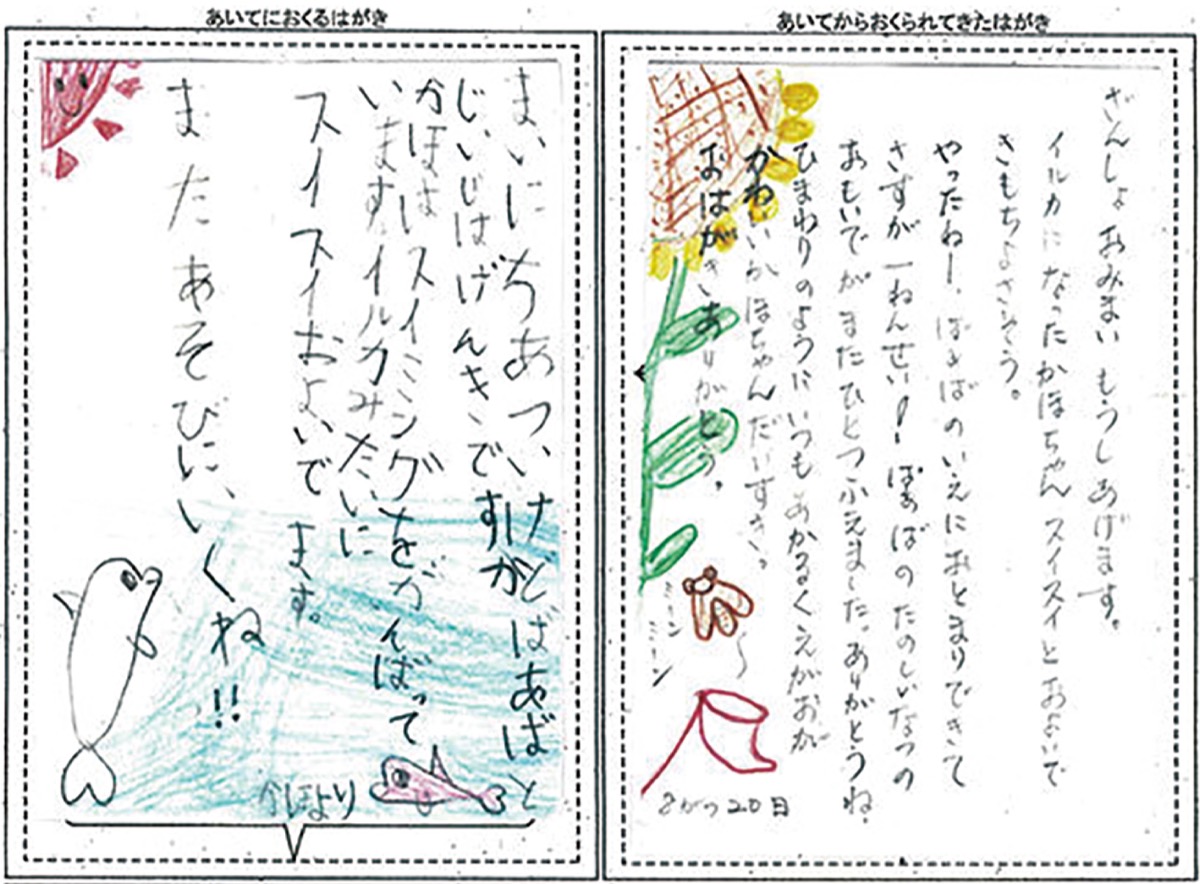 あいてにおくるはがき
まいにちあついけどばあばと
じいじはげんきですか
かほはいスイミングをがんばって
います。イルカみたいに
スイスイおよいで
ます。
またあそびにいくね!!
かほより
あいてからおくられてきたはがき
ざんしょおみまいもうしあげます。
イルカになったかほちゃんスイスイとおよいで
きもちよさそう。
やったねー、ばぁばのいえにおとまりできて
さすが一ねんせい!ばぁばのたのしいなつの
おもいでがまたひとつふえました。ありがとうね。
ひまわりのようにいつもあかるくえがおが
かわいいかほちゃんだいすき。
おはがきありがとう。
ミーン
ミーン
8がつ20日